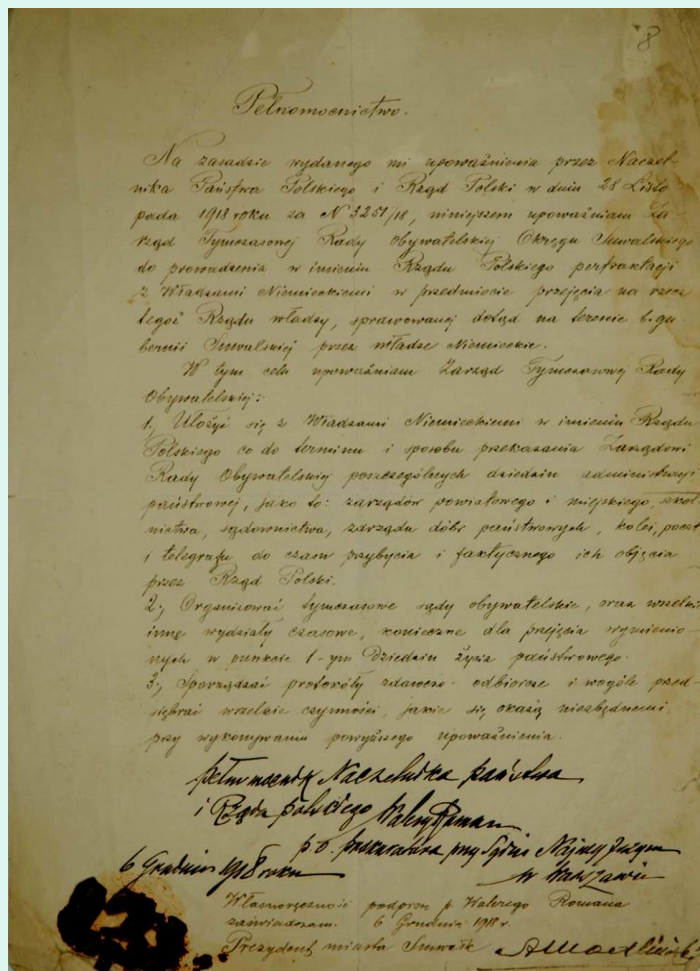 8
Pełnomocnictwo.
Na zasadzie wydanego mi upoważnienia przez Naczel-
nika Państwa Polskiego i Rząd Polski w dniu 28 Listo
pada 1918 roku za N 3251/18, niniejszem upoważniam Za-
rząd Tymczasowej Rady Obywatelskiej Okręgu Suwalskiego
do prowadzenia w imieniu Rządu Polskiego pertraktacji
z Władzami Niemieckiemi w przedmiocie przejęcia na rzecz
tegoż Rządu władzy, sprawowanej dotąd na terenie b. gu-
bernii Suwalskiej przez władze Niemieckie.
W tym celu upoważniam Zarząd Tymczasowej Rady
Obywatelskiej:
1., Ułożyć się z Władzami Niemieckiemi w imieniu Rządu
Polskiego co do terminu i sposobu przekazania Zarządowi
Rady Obywatelskiej poszczególnych dziedzin administracji
państwowej, jako to: zarządów powiatowego i miejskiego, szkol
nictwa, sądownictwa, zarządu dóbr państwowych, kolei, poczt
i telegrafu do czasu przybycia i faktycznego ich objęcia
przez Rząd Polski.
2., Organizować tymczasowe sądy obywatelskie, oraz wszelkie
inne wydziały czasowe, konieczne dla przejęcia wymienio-
nych w punkcie 1-ym dziedzin życia państwowego.
3., Sporządzać protokóły zdawczo-odbiorcze i wogóle przed-
siębrać wszelkie czynności, jakie się okażą niezbędnemi
przy wykonywaniu powyższego upoważnienia.
Pełnomocnik Naczelnika Państwa
i Rządu Polskiego Walery Roman
p.o. prokuratora przy Sądzie Najwyższym
6 Grudnia 1918 roku w Warszawie
Własnoręczność podpisu p. Walerego Romana
zaświadczam. 6 Grudnia 1918 r.
Prezydent miasta Suwałk